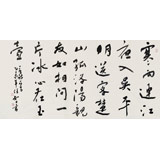 寒雨連江
夜入吴平
明送客楚
山孤洛陽親
友如相問一
片冰心在玉
壺